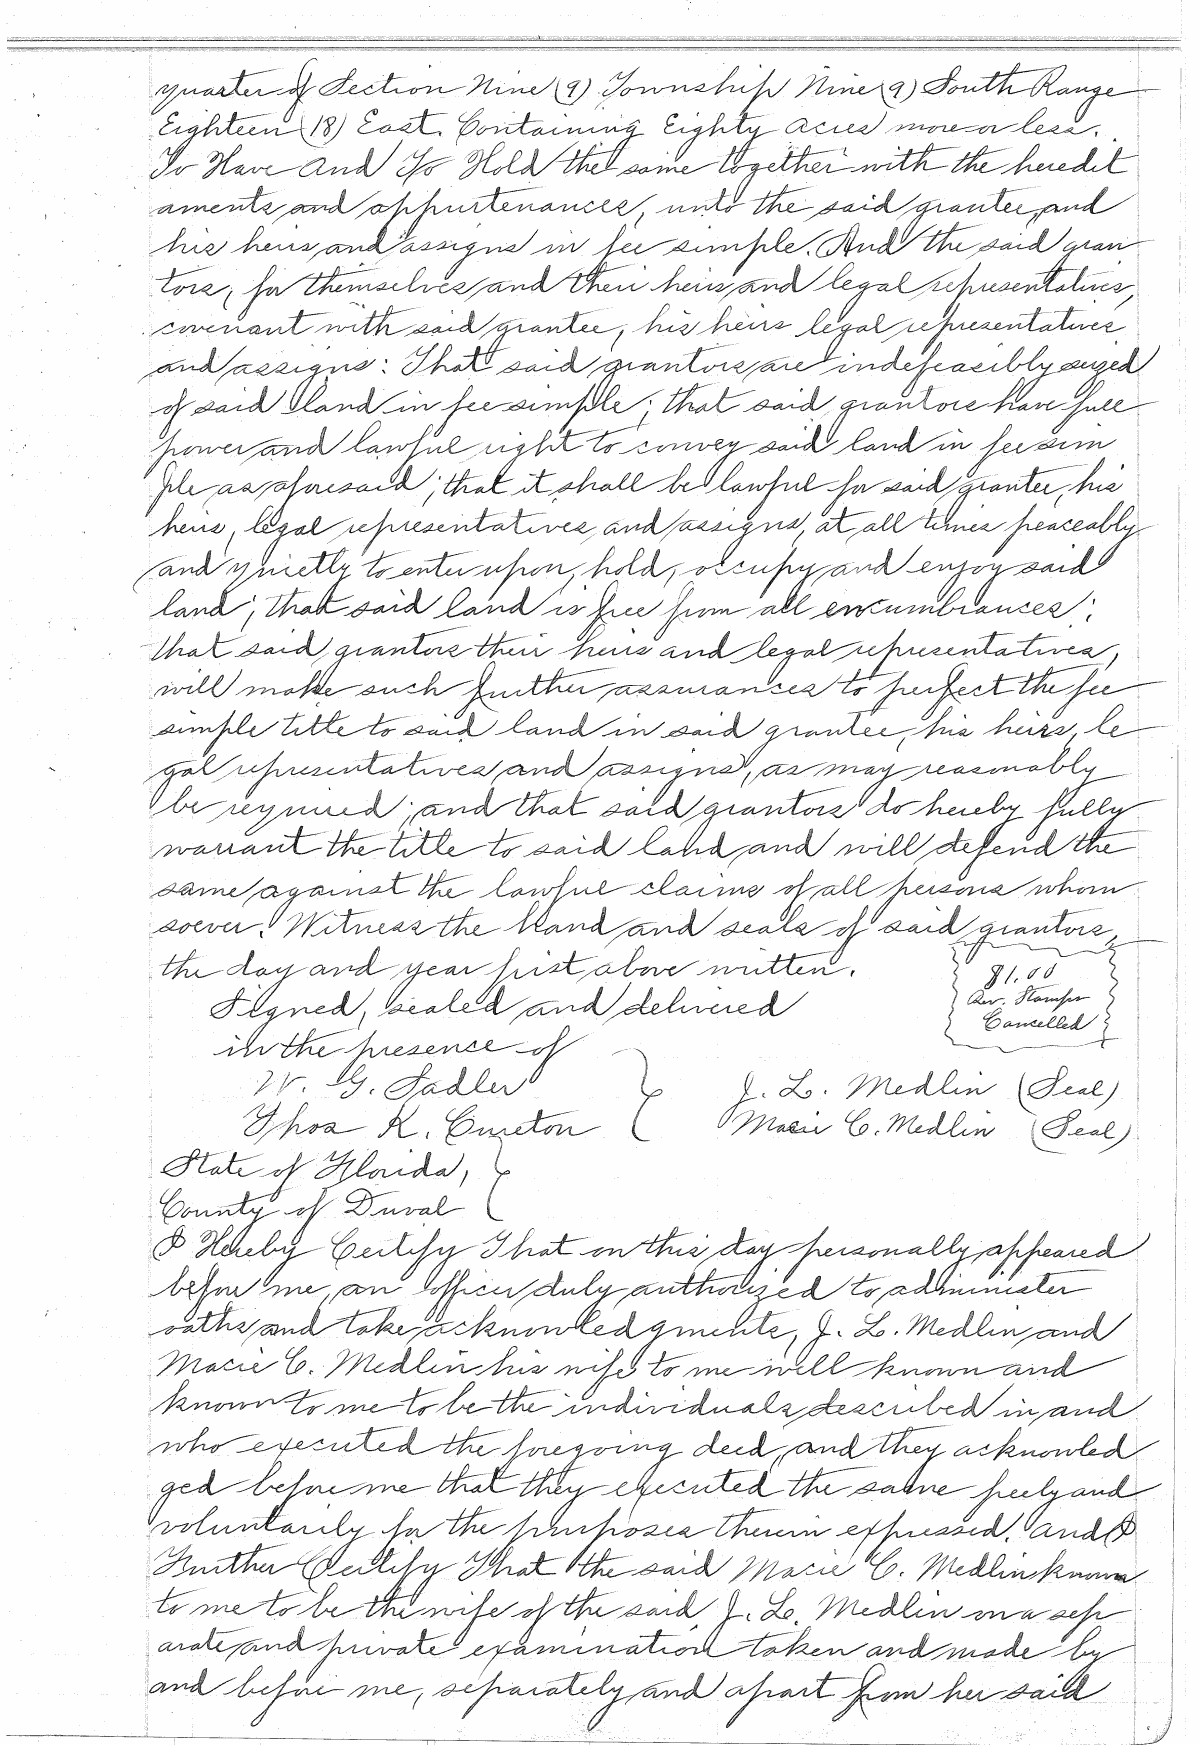 quarter of Section Nine (9) Township Nine (9) South Range
Eighteen (18) East. Containing Eighty acres more or less.
To Have And To Hold the same together with the heredit
aments and appurtenances, unto the said grantee, and
his heirs and assigns in fee simple. And the said gran
tors, for themselves and their heirs and legal representatives,
covenant with said grantee, his heirs legal representatives
and assigns: That said grantors are indefeasibly seized
of said land in fee simple; that said grantors have full
power and lawful right to convey said land in fee sim
ple as aforesaid; that it shall be lawful for said grantee, his
heirs, legal representatives, and assigns, at all times peaceably
and quietly to enter upon, hold, occupy and enjoy said
land; that said land is free from all encumbrances;
that said grantors their heirs and legal representatives,
will make such further assurances to perfect the fee
simple title to said land in said grantee, his heirs, le
gal representatives and assigns, as may reasonably
be required; and that said grantors do hereby fully
warrant the title to said land and will defend the
same against the lawful claims of all persons whom
soever. Witness the hand and seals of said grantors,
the day and year first above written.
$1.00
Rev. Stamps
Cancelled
Signed, sealed and delivered
in the presence of
W. G. Sadler
J. L. Medlin (Seal)
Thos K. Cureton
Macie C. Medlin (Seal)
State of Florida,
County of Duval
I Hereby Certify That on this day personally appeared
before me, an officer duly authorized to administer
oaths and take acknowledgments, J. L. Medlin and
Macie C. Medlin his wife to me well known and
known to me to be the individuals described in and
who executed the foregoing deed, and they acknowled
ged before me that they executed the same freely and
voluntarily for the purposes therein expressed. And I
Further Certify That the said Macie C. Medlin known
to me to be the wife of the said J. L. Medlin on a sep
arate and private examination taken and made by
and before me, separately and apart from her said